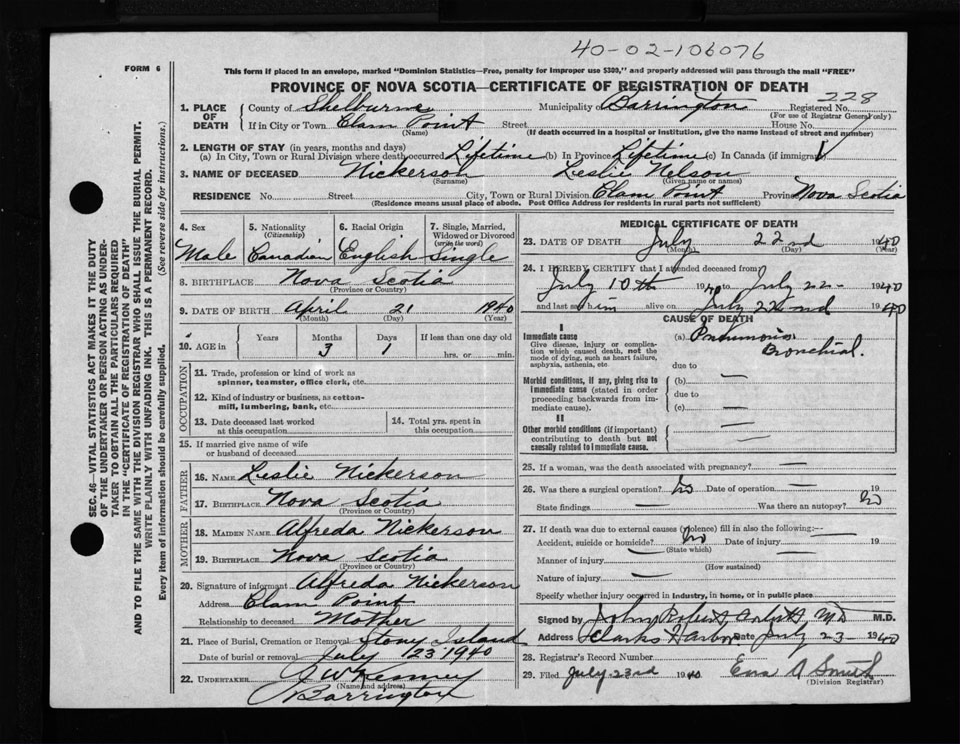 40-02-106076
FORM 6
This form if placed in an envelope, marked "Dominion Statistics—Free, penalty for improper use $300," and properly addressed will pass through the mail "FREE"
PROVINCE OF NOVA SCOTIA—CERTIFICATE OF REGISTRATION OF DEATH
1. PLACE OF DEATH
County of Shelburne Municipality of Barrington Registered No. 228
(For use of Registrar General only)
If in City or Town Clam Point Street House No.
(Name) (If death occurred in a hospital or institution, give the name instead of street and number)
2. LENGTH OF STAY (in years, months and days)
(a) In City, Town or Rural Division where death occurred Lifetime (b) In Province Lifetime (c) In Canada (if immigrant)
3. NAME OF DECEASED Nickerson Leslie Nelson
(Surname) (Given name or names)
RESIDENCE No. Street City, Town or Rural Division Clam Point Province Nova Scotia
(Residence means usual place of abode. Post Office Address for residents in rural parts not sufficient)
4. Sex Male
5. Nationality (Citizenship) Canadian
6. Racial Origin English
7. Single, Married, Widowed or Divorced (write the word) Single
8. BIRTHPLACE Nova Scotia
(Province or Country)
9. DATE OF BIRTH April 21 1940
(Month) (Day) (Year)
10. AGE in Years Months 3 Days 1 If less than one day old
hrs. or min.
OCCUPATION
11. Trade, profession or kind of work as
spinner, teamster, office clerk, etc.
12. Kind of industry or business, as cotton-
mill, lumbering, bank, etc.
13. Date deceased last worked
at this occupation
14. Total yrs. spent in
this occupation
15. If married give name of wife
or husband of deceased
FATHER
16. NAME Leslie Nickerson
17. BIRTHPLACE Nova Scotia
(Province or Country)
MOTHER
18. MAIDEN NAME Alfreda Nickerson
19. BIRTHPLACE Nova Scotia
(Province or Country)
20. Signature of informant Alfreda Nickerson
Address Clam Point
Relationship to deceased Mother
21. Place of Burial, Cremation or Removal Stony Island
Date of burial or removal July 23 1940
22. UNDERTAKER Kenney
(Name and address)
Barrington
MEDICAL CERTIFICATE OF DEATH
23. DATE OF DEATH July 22nd 1940
(Month) (Day) (Year)
24. I HEREBY CERTIFY that I attended deceased from
July 10th 1940 to July 22- 1940
and last saw him alive on July 22nd 1940
CAUSE OF DEATH
I
Immediate cause
Give disease, injury or complica-
tion which caused death, not the
mode of dying, such as heart failure,
asphyxia, asthenia, etc.
(a) Pneumonia
Bronchial.
due to
Morbid conditions, if any, giving rise to
immediate cause (stated in order
proceeding backwards from im-
mediate cause).
(b) —
due to
(c) —
II
Other morbid conditions (if important)
contributing to death but not
causally related to immediate cause.
25. If a woman, was the death associated with pregnancy? —
26. Was there a surgical operation? No Date of operation — 19
State findings — Was there an autopsy? No
27. If death was due to external causes (violence) fill in also the following:—
Accident, suicide or homicide? No Date of injury — 19
(State which)
Manner of injury —
(How sustained)
Nature of injury —
Specify whether injury occurred in industry, in home, or in public place
Signed by John Robert M.D. M.D.
Address Clarks Harbor Date July 23- 1940
28. Registrar's Record Number
29. Filed July 23rd 1940 Smith
(Division Registrar)
SEC. 46—VITAL STATISTICS ACT MAKES IT THE DUTY
OF THE UNDERTAKER OR PERSON ACTING AS UNDER-
TAKER TO OBTAIN ALL THE PARTICULARS REQUIRED
IN THE "CERTIFICATE OF REGISTRATION OF DEATH"
AND TO FILE THE SAME WITH THE DIVISION REGISTRAR WHO SHALL ISSUE THE BURIAL PERMIT.
WRITE PLAINLY WITH UNFADING INK. THIS IS A PERMANENT RECORD.
Every item of information should be carefully supplied. (See reverse side for instructions.)